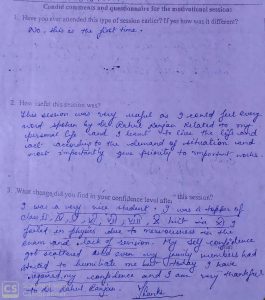 Candid comments and questionnaire for the motivational sessions
1. Have you ever attended this type of session earlier? If yes how was it different?
No, this is the first time.
2. How useful this session was?
This session was very useful as I could feel every
word spoken by Dr. Rahul Ranjan related to my
personal life and I learnt to live the life and
act according to the demand of situation and
most importantly give priority to important works.
3. What change did you find in your confidence level after this session?
I was a very nice student. I was a topper of
class IV, V, VI, VII, VIII, X but in XI I
failed in physics due to nervousness in the
exam and lack of revision. My self confidence
got scattered and even my family members had
started to humiliate me but today I have
regained my confidence and I am very thankful
to Dr Rahul Ranjan. Thanks
CS